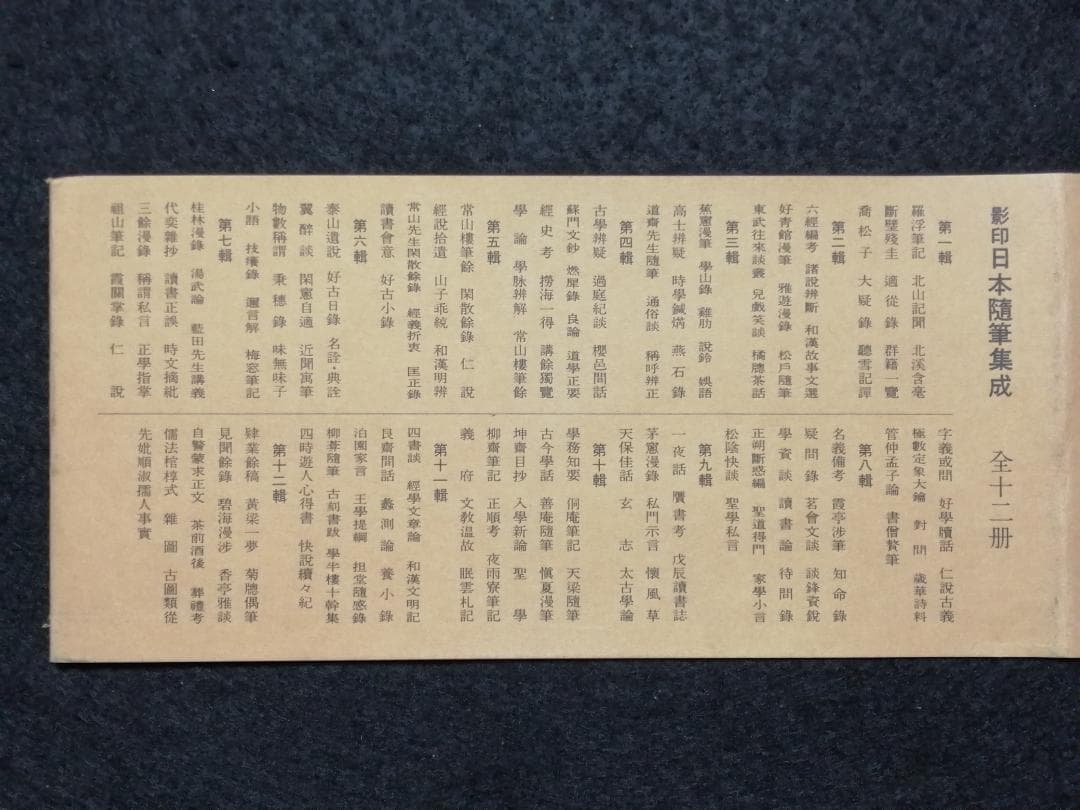 影印日本隨筆集成　全十二册
第一輯
羅浮筆記　北山記聞　北溪含毫
斷璧殘圭　適從錄　群籍一覽
喬松子　大疑錄　聽雪記譚
第二輯
六經編考　諸說辨斷　和漢故事文選
好青館漫筆　雅遊漫錄　松戶隨筆
東武往來談叢　兒戲笑談　橘牕茶話
第三輯
蕉窻漫筆　學山錄　雞肋　說鈴　娛語
高士辨疑　時學鍼焫　燕石錄
道齋先生隨筆　通俗談　稱呼辨正
第四輯
古學辨疑　過庭紀談　櫻邑間話
蘇門文鈔　燃犀錄　良論　道學正要
經史考　撈海一得　講餘獨覽
學論　學脉辨解　常山樓筆餘
第五輯
常山樓筆餘　閑散餘錄　仁說
經說拾遺　山子乖統　和漢明辨
常山先生閑散餘錄　經義折衷　匡正錄
讀書會意　好古小錄
第六輯
泰山遺說　好古日錄　名詮・典詮
翼醉談　閑窻自適　近聞寓筆
物數稱謂　秉穗錄　味無味子
小語　技癢錄　邇言解　梅窓筆記
第七輯
桂林漫錄　湯武論　藍田先生講義
代奕雜抄　讀書正誤　時文摘紕
三餘漫錄　稱謂私言　正學指掌
祖山筆記　霞關掌錄　仁說
字義或問　好學牘話　仁說古義
極數定象大鑰　對問　歲華詩料
管仲孟子論　書僧贅筆
第八輯
名義備考　霞亭涉筆　知命錄
疑問錄　茗會文談　談鋒資銳
學資談　讀書論　待問錄
正朔斷惑編　聖道得門　家學小言
松陰快談　聖學私言
第九輯
一夜話　贋書考　戊辰讀書誌
茅窻漫錄　私門示言　懷風草
天保佳話　玄志　太古學論
第十輯
學務知要　侗庵筆記　天梁隨筆
古今學話　善庵隨筆　愼夏漫筆
坤齋目抄　入學新論　聖學
柳齋筆記　正順考　夜雨寮筆記
義府　文敎溫故　眠雲札記
第十一輯
四書談　經學文章論　和漢文明記
艮齋間話　蠡測論　養小錄
泊園家言　王學提綱　担堂隨感錄
柳菴隨筆　古刻書跋　學半樓十幹集
四時遊人心得書　快說續々紀
第十二輯
肄業餘稿　黃梁一夢　菊牕偶筆
見聞餘錄　碧海漫涉　香亭雅談
自警蒙求正文　茶前酒後　葬禮考
儒法棺椁式　雜圖　古圖類從
先妣順淑孺人事實